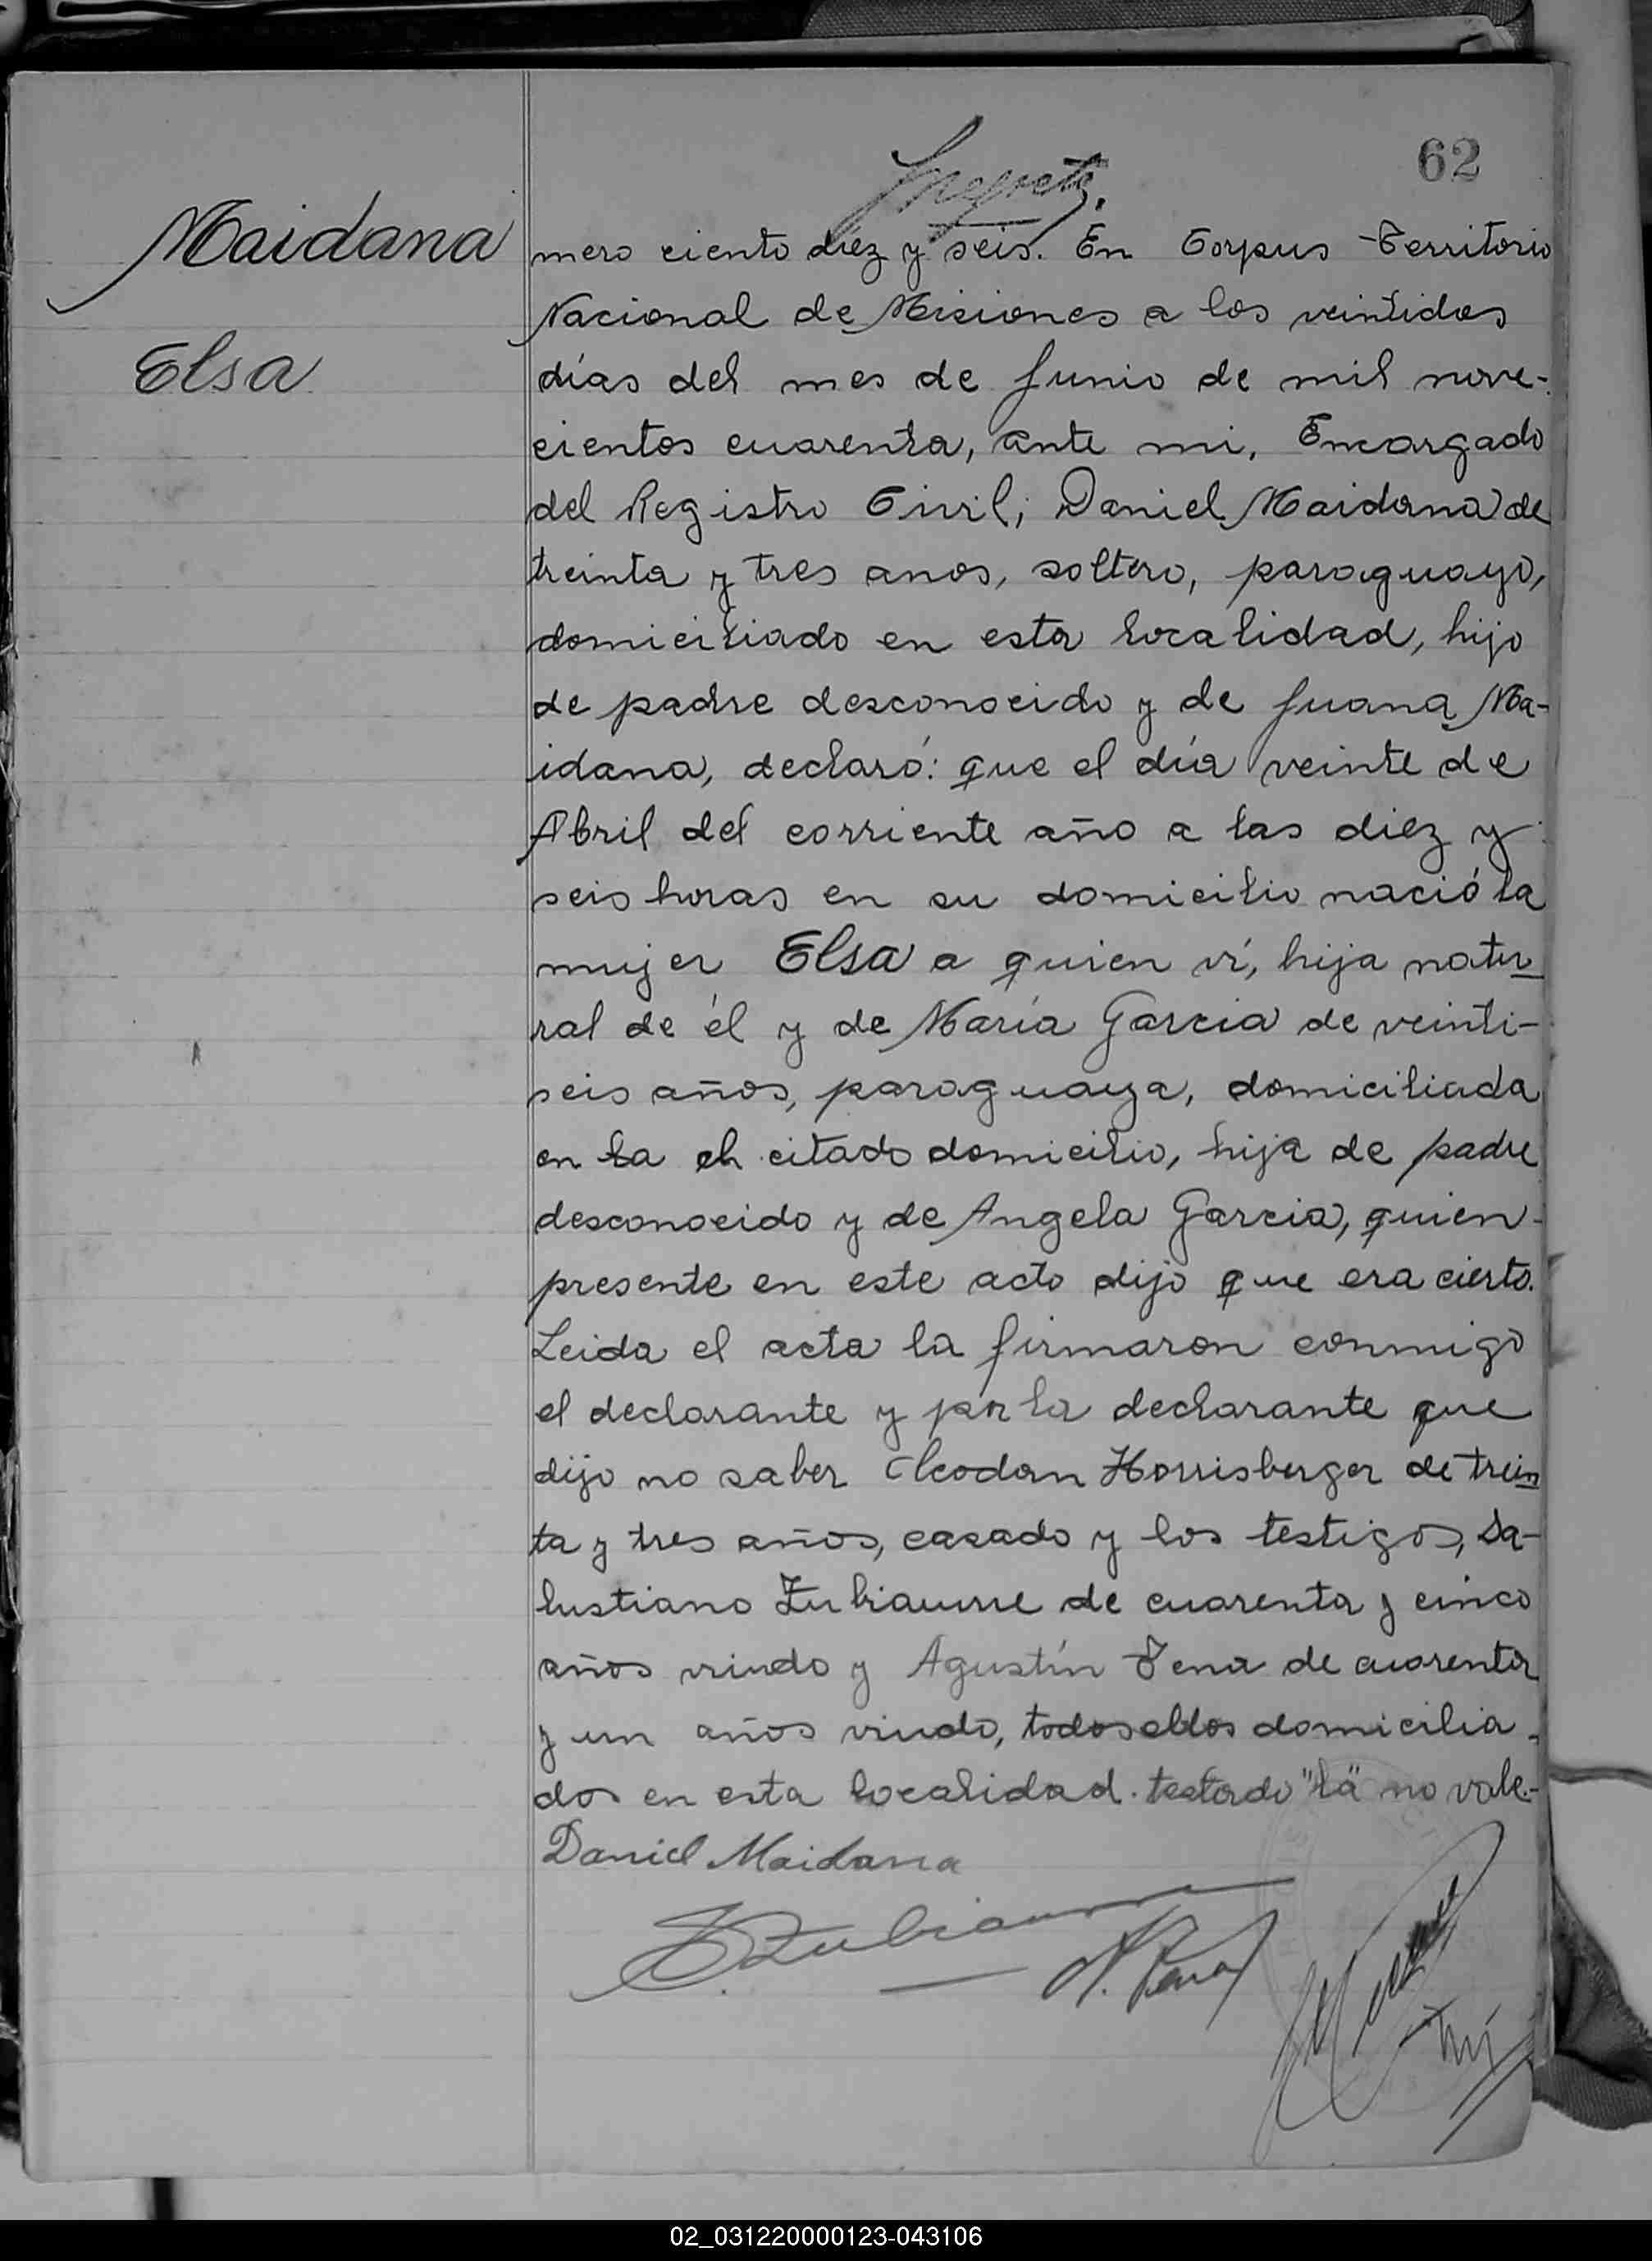 62
Maidana
Elsa
mero ciento diez y seis. En Corpus Territorio
Nacional de Misiones a los veintidos
días del mes de Junio de mil nove-
cientos cuarenta, ante mi, Encargado
del Registro Civil; Daniel Maidana de
treinta y tres anos, soltero, paraguayo,
domiciliado en esta localidad, hijo
de padre desconocido y de Juana Ma-
idana, declaró: que el día veinte de
Abril del corriente año a las diez y
seis horas en su domicilio nació la
mujer Elsa a quien ví, hija natu
ral de él y de María Garcia de veinti-
seis años, paraguaya, domiciliada
en la el citado domicilio, hija de padre
desconocido y de Angela Garcia, quien
presente en este acto dijo que era cierto.
Leida el acta la firmaron conmigo
el declarante y por la declarante que
dijo no saber Horrisberger de trein
ta y tres años, casado y los testigos, Sa-
lustiano Zubiaurre de cuarenta y cinco
años viudo y Agustín Pena de cuarenta
y un años viudo, todos ellos domicilia-
dos en esta localidad. testado "la" no vale.-
Daniel Maidana
S. Zubiaurre
A. Pena